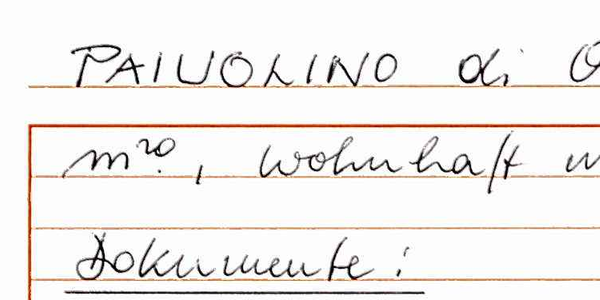 PAIUOLINO di
m²⁰, wohnhaft
Dokumente: